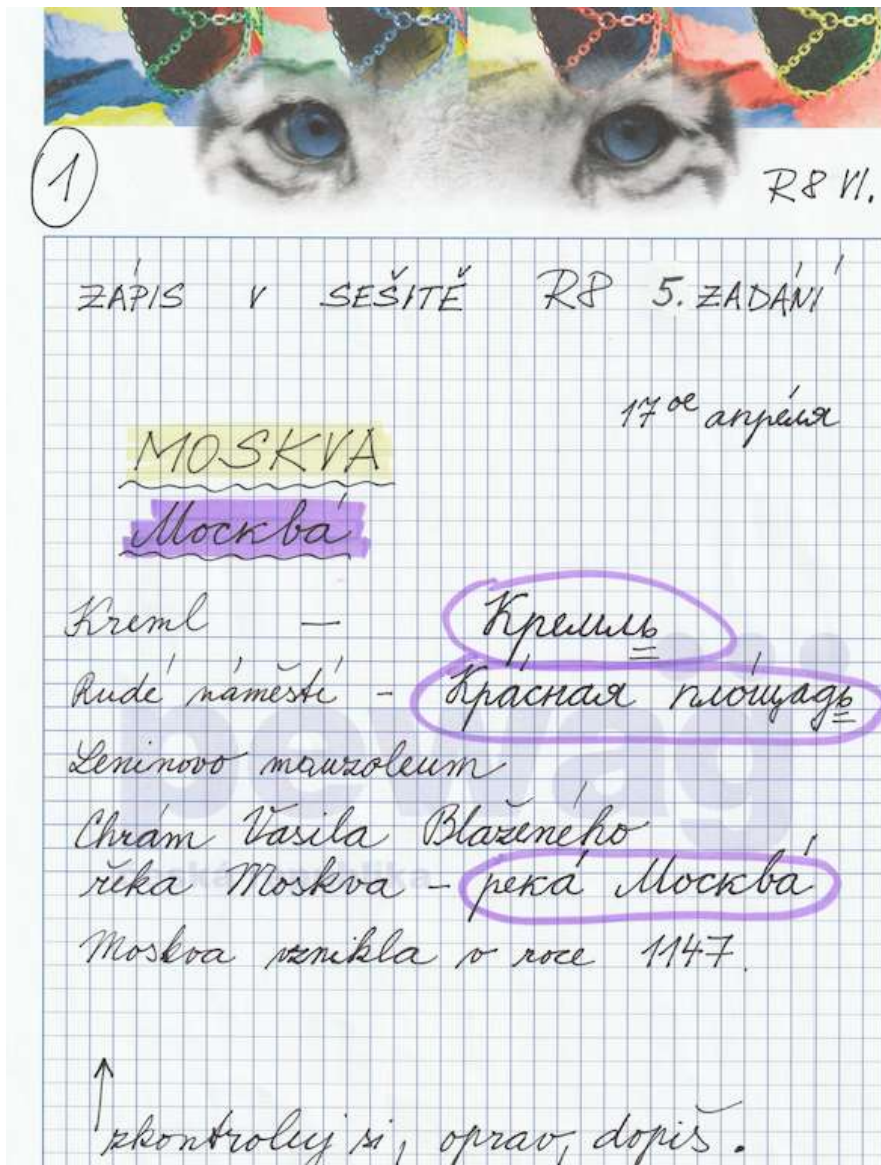 1
R8 VI.
ZÁPIS V SEŠITĚ R8 5. ZADÁNÍ
17ое апре́ля
MOSKVA
Москва́
Kreml — Кремль
Rudé náměstí - Кра́сная пло́щадь
Leninovo mauzoleum
Chrám Vasila Blaženého
řeka Moskva - река́ Москва́
Moskva vznikla v roce 1147.
↑
zkontroluj si, oprav, dopiš.
pewag